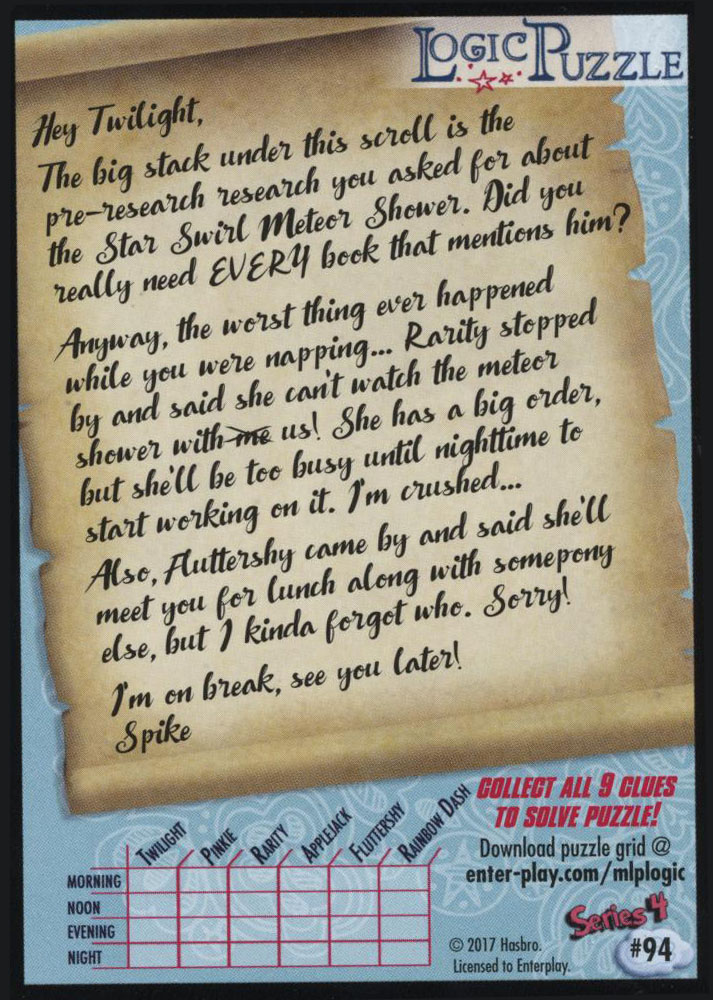 LOGIC PUZZLE
Hey Twilight,
The big stack under this scroll is the
pre-research research you asked for about
the Star Swirl Meteor Shower. Did you
really need EVERY book that mentions him?
Anyway, the worst thing ever happened
while you were napping... Rarity stopped
by and said she can't watch the meteor
shower with me us! She has a big order,
but she'll be too busy until nighttime to
start working on it. I'm crushed...
Also, Fluttershy came by and said she'll
meet you for lunch along with somepony
else, but I kinda forgot who. Sorry!
I'm on break, see you later!
Spike
COLLECT ALL 9 CLUES
TO SOLVE PUZZLE!
Download puzzle grid @
enter-play.com/mlplogic
TWILIGHT PINKIE RARITY APPLEJACK FLUTTERSHY RAINBOW DASH
MORNING
NOON
EVENING
NIGHT
Series 4
#94
© 2017 Hasbro.
Licensed to Enterplay.